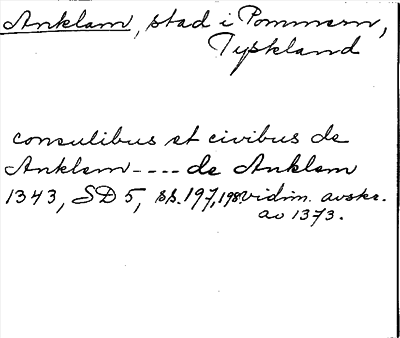 Anklam, stad i Pommern,
Tyskland
consulibus et civibus de
Anklem ---- de Anklem
1343, SD 5, ss. 197, 198. vidim. avskr.
av 1373.